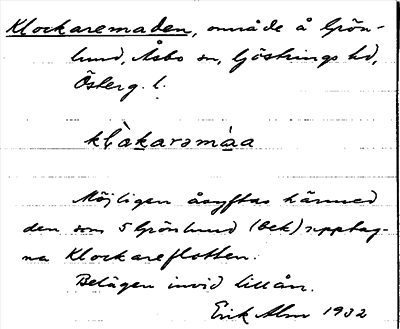 Klockaremaden, område å Grön-
lund, Åsbo sn, Göstrings hd,
Österg. l.
klàkarəmàa
Möjligen åsyftas härmed
den som 5 Grönlund (bek) upptag-
na Klockareflotten.
Belägen invid lillån.
Erik Alm 1932